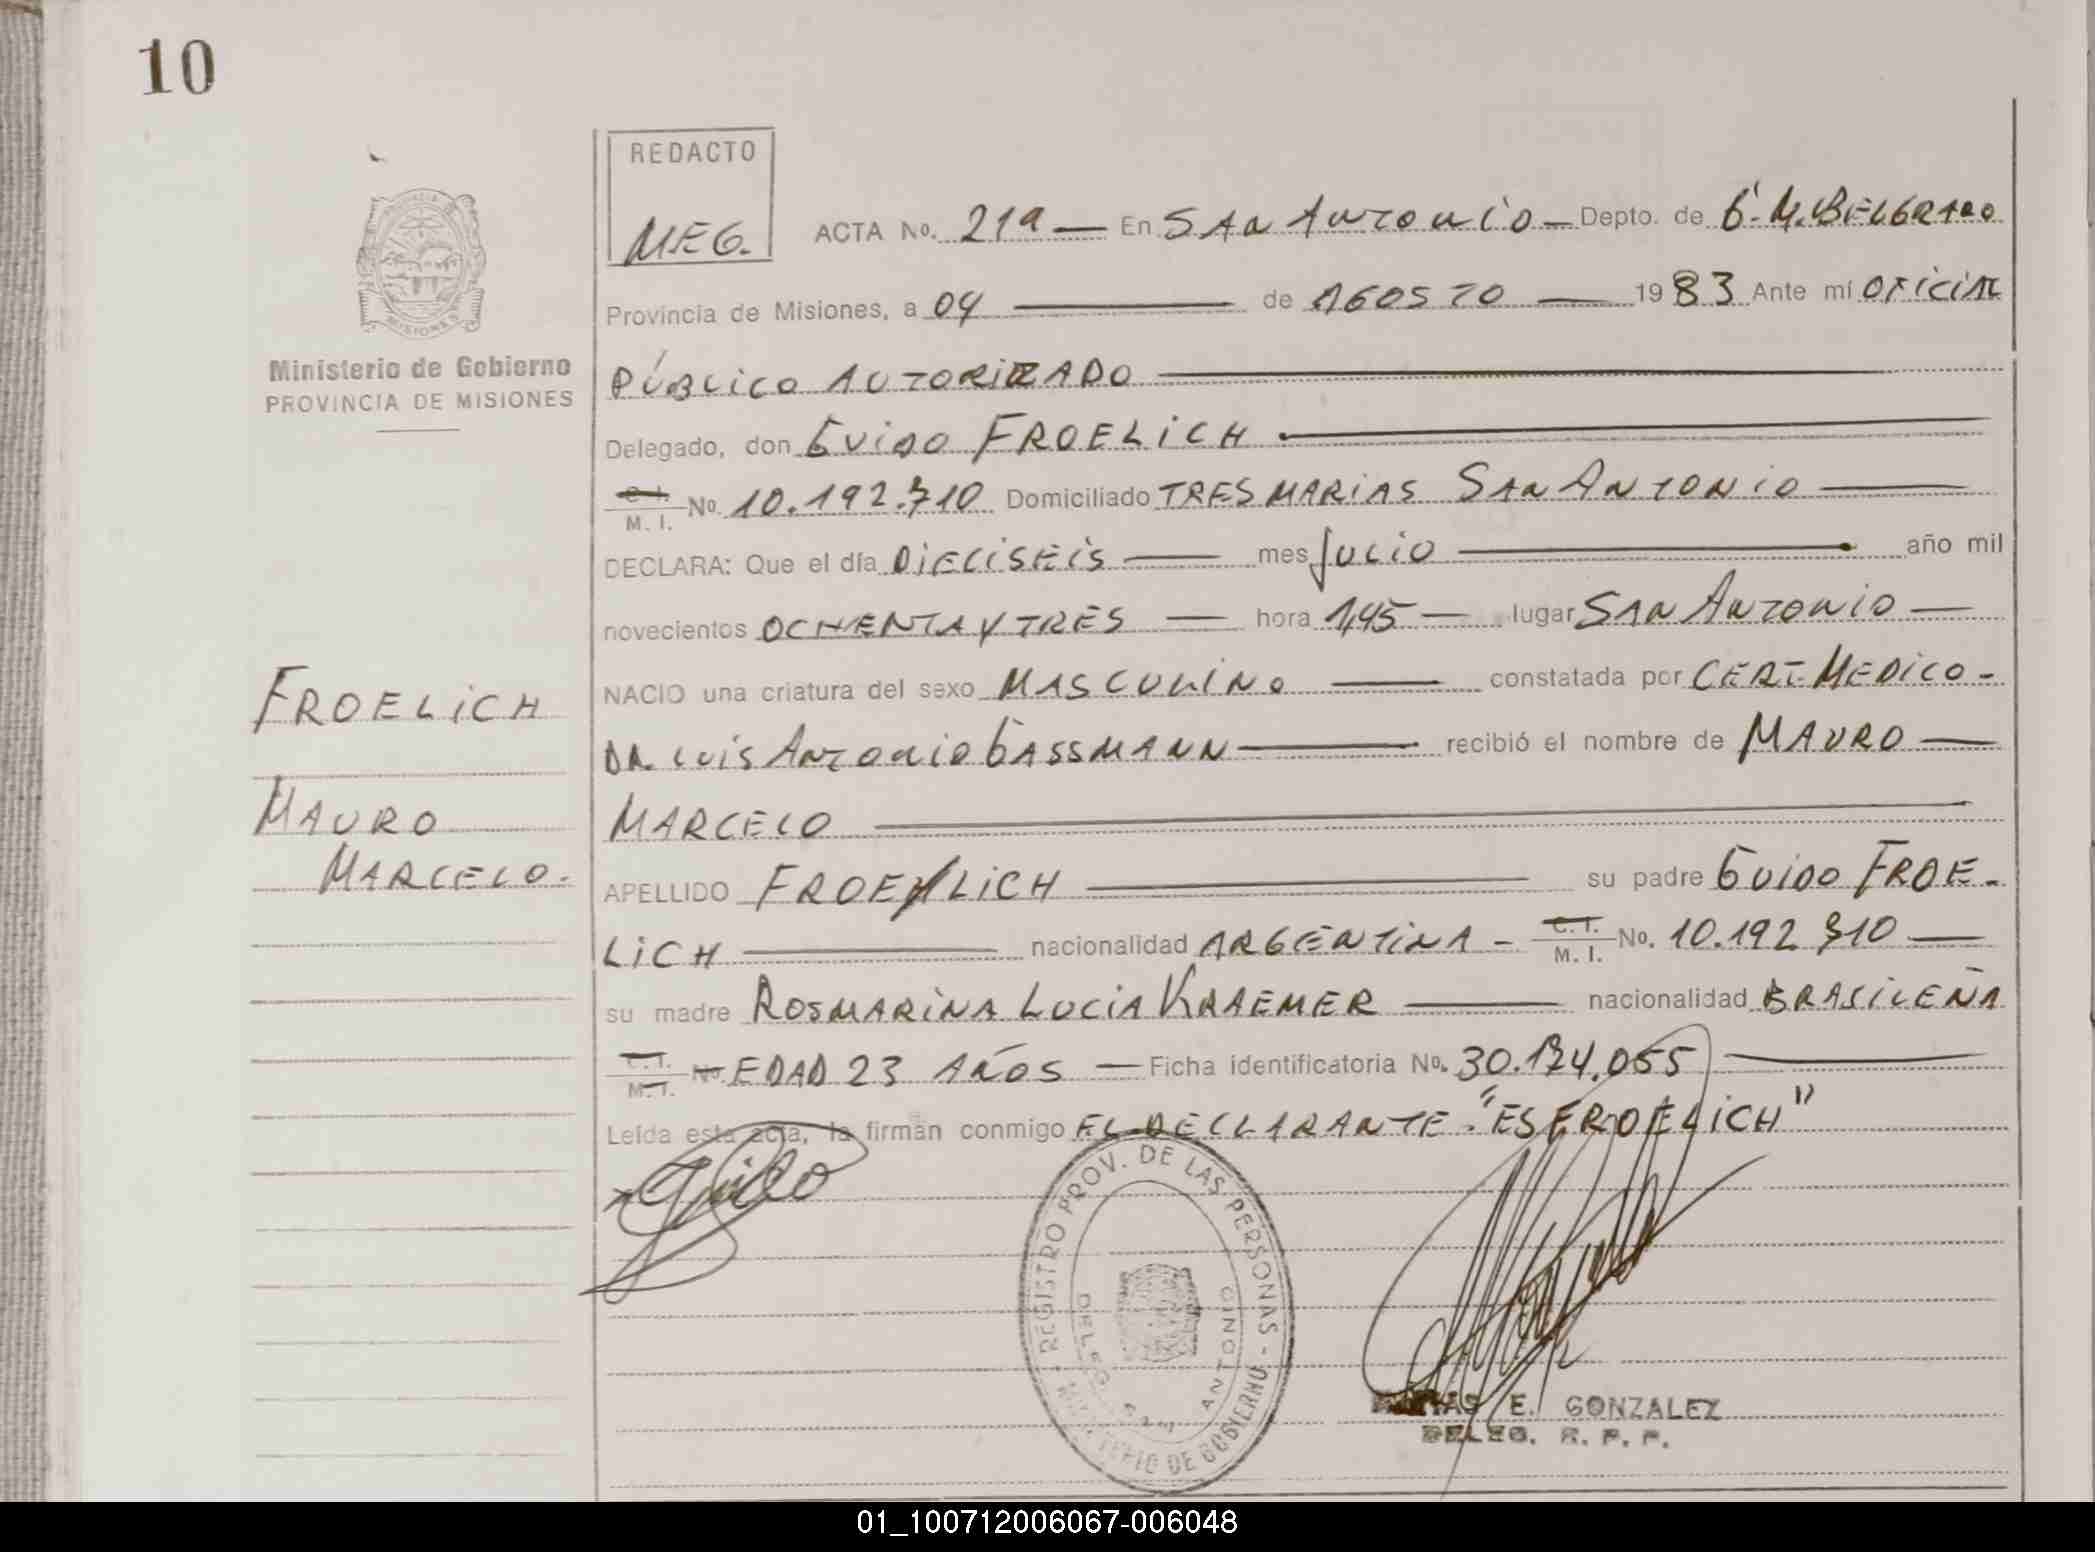 10
REDACTO
MEG.
ACTA No. 21ª — En SAN ANTONIO — Depto. de G. M. BELGRANO
Provincia de Misiones, a 04 — de AGOSTO — 1983 Ante mí OFICIAL
PÚBLICO AUTORIZADO
Delegado, don GUIDO FROELICH
C. I. / M. I. No. 10.192.710 Domiciliado TRES MARIAS SAN ANTONIO —
DECLARA: Que el día DIECISEIS — mes JULIO — año mil
novecientos OCHENTA Y TRES — hora 1,45 — lugar SAN ANTONIO —
NACIO una criatura del sexo MASCULINO — constatada por CERT. MEDICO -
DR. LUIS ANTONIO GASSMANN — recibió el nombre de MAURO —
MARCELO
APELLIDO FROELICH — su padre GUIDO FROE-
LICH — nacionalidad ARGENTINA - C. I. / M. I. No. 10.192 910 —
su madre ROSMARINA LUCIA KRAEMER — nacionalidad BRASILEÑA
C. I. / M. I. No. EDAD 23 AÑOS — Ficha identificatoria No. 30.174.055 —
Leída esta acta, la firman conmigo EL DECLARANTE. "ES FROELICH"
Guido
Ministerio de Gobierno
PROVINCIA DE MISIONES
FROELICH
MAURO
MARCELO.
REGISTRO PROV. DE LAS PERSONAS - MINISTERIO DE GOBIERNO
DELEG. SAN ANTONIO
E. GONZALEZ
DELEG. R. P. P.
01_100712006067-006048